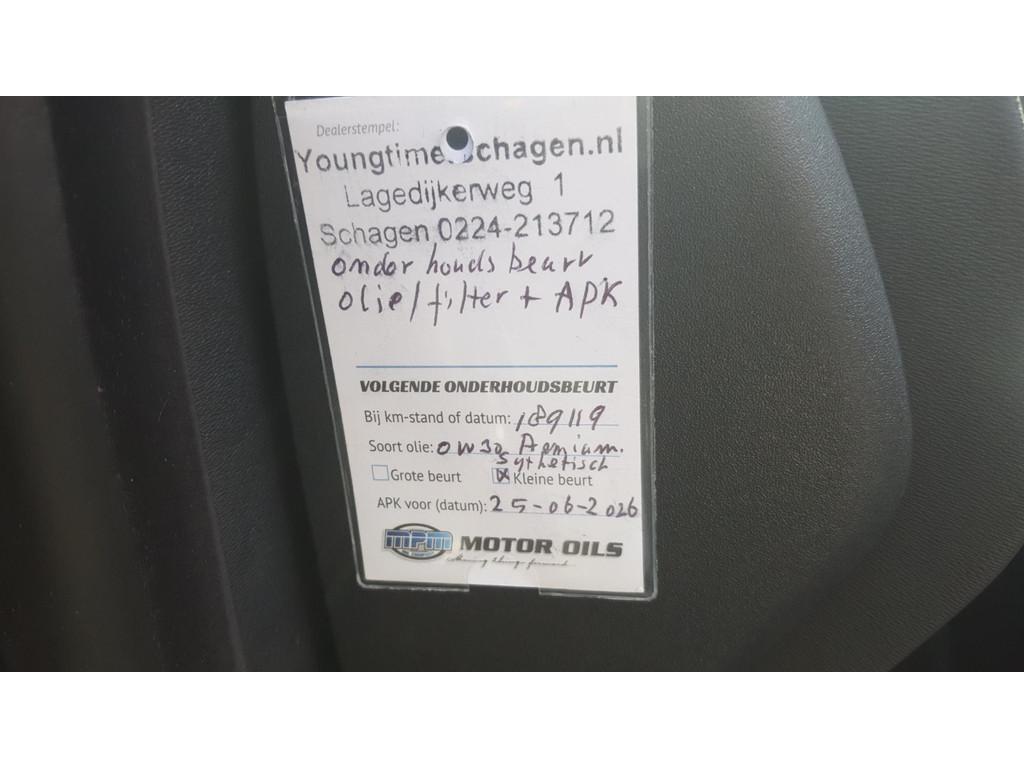 Dealerstempel:
Youngtimerschagen.nl
Lagedijkerweg 1
Schagen 0224-213712
onderhouds beurt
olie/filter + APK
VOLGENDE ONDERHOUDSBEURT
Bij km-stand of datum: 189119
Soort olie: 0W30 Premium.
Sythetisch
Grote beurt Kleine beurt
APK voor (datum): 25-06-2026
mpm MOTOR OILS